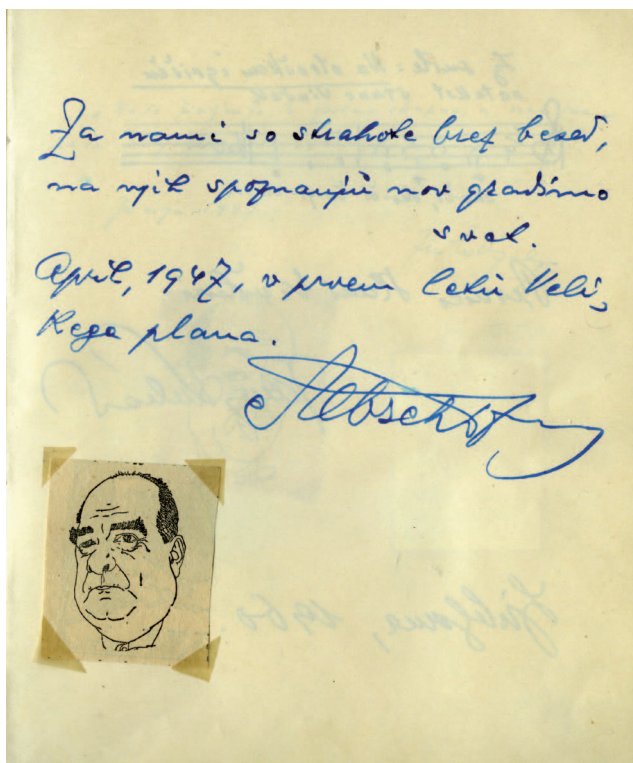 Za nami so strahote brez besed,
na njih spoznanjih nov gradimo
svet.
April, 1947, v prvem letu Veli-
kega plana.